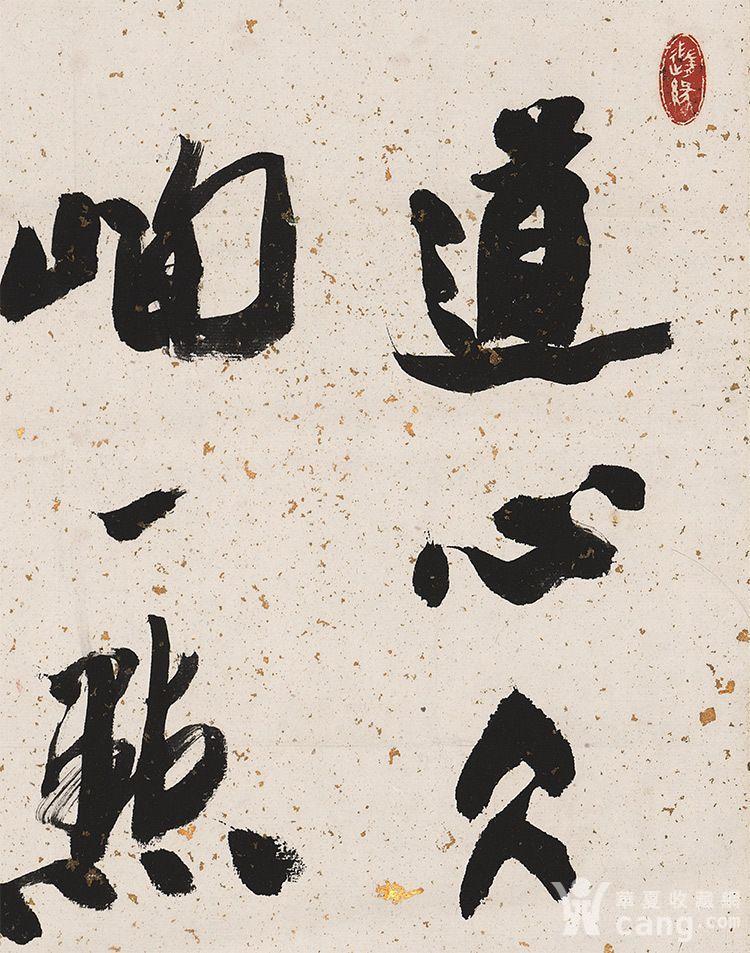 隨緣
道心久
一點
華夏收藏網
cang.com